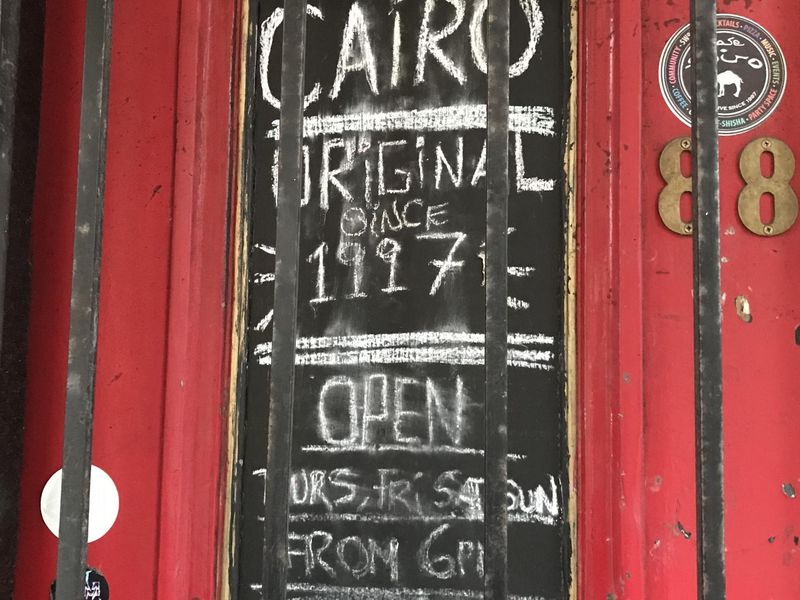 CAIRO
ORIGINAL
SINCE
1997
OPEN
THURS, FRI SAT SUN
FROM 6PM
COMMUNITY · COCKTAILS · PIZZA · MUSIC · EVENTS
SHISHA · PARTY SPACE
SINCE 1997
88